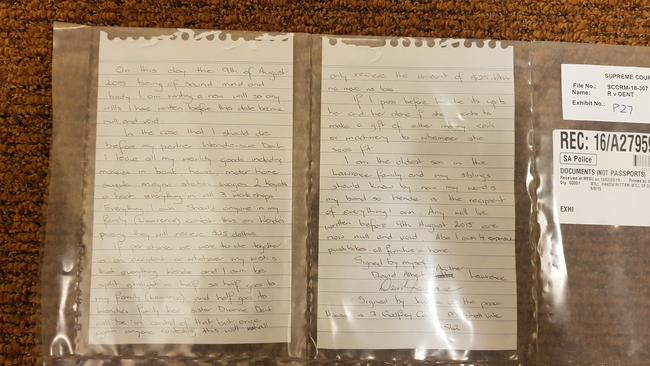 On this day the 9th of August
2015 being of sound mind and
body I am writing a new will so any
wills I have written before this date become
null and void.
In the case that I should die
before my partner Hendie-sue Dent
I leave all my worldly goods including
monies in bank house motor home
magna station wagon 2 boats
a boat everything in all 3 workshops
Everything I own. Should anyone in my
family Lawrence's contest this on
passing they will receive $25 dollars
If per chance we were to die together
in an accident or whatever my wish is
that everything and I own be
split straight in half so half goes to
my Family (Lawrence) and half goes to
family her sister Dianne Dent
will be in control of that but once
again anyone contesting this will
only receive the amount of $25 dollars
no more no less.
If I pass before it be its up to
her and her alone if she wants to
make a gift of either money, cars
or machinery to whomever she
sees fit.
I am the oldest son in the
Lawrence family and my siblings
should know by now my word is
my bond so is the recipient
of everything I own. Any will be
written before 9th August 2015 are
now null and void. Also I own 4 expensive
all furniture in home.
Signed by myself
David Albert Lawrence
Signed by Justice of the peace
is 7 Godfrey
5162
SUPREME COUR
File No.: SCCRM-18-307
Name: R v DENT
Exhibit No.: P27
REC: 16/A27959
SA Police
DOCUMENTS (NOT PASSPORTS)
EXHI